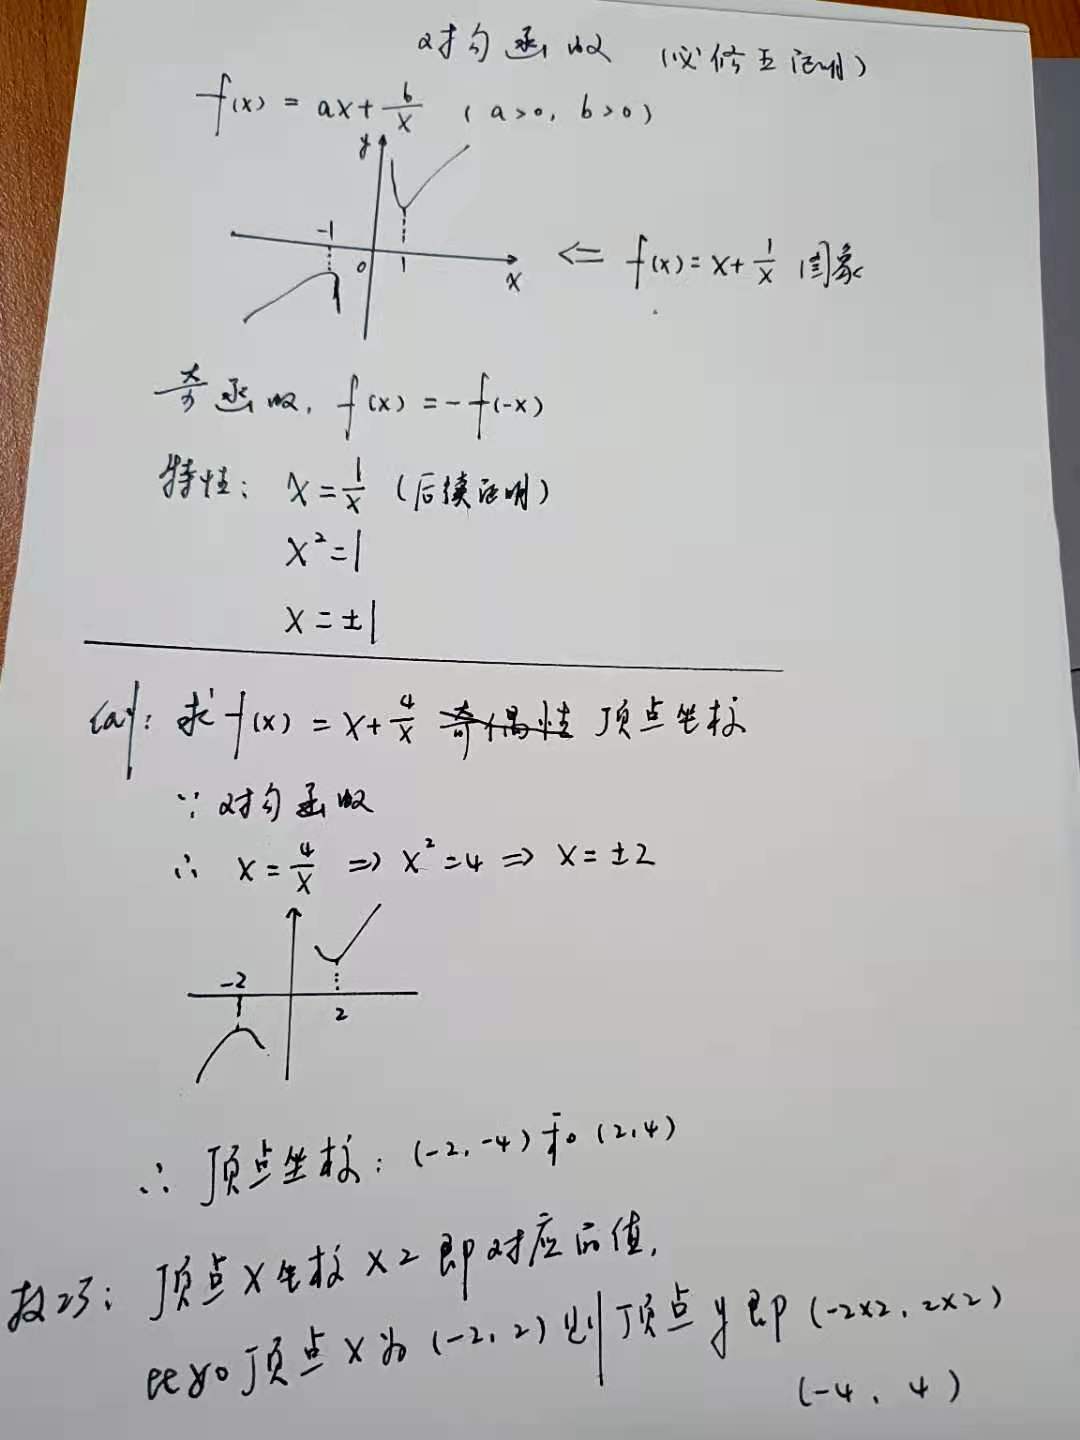 对勾函数 (必修五证明)
f(x) = ax + b/x (a>0, b>0)
y
-1
0 1 x
<= f(x) = x + 1/x 图象
奇函数, f(x) = -f(-x)
特性: x = 1/x (后续证明)
x² = 1
x = ±1
例: 求 f(x) = x + 4/x 奇偶性 顶点坐标
∵ 对勾函数
∴ x = 4/x => x² = 4 => x = ±2
-2
2
∴ 顶点坐标: (-2, -4) 和 (2, 4)
技巧: 顶点 x 坐标 ×2 即对应的值,
比如顶点 x 为 (-2, 2) 则顶点 y 即 (-2×2, 2×2)
(-4, 4)